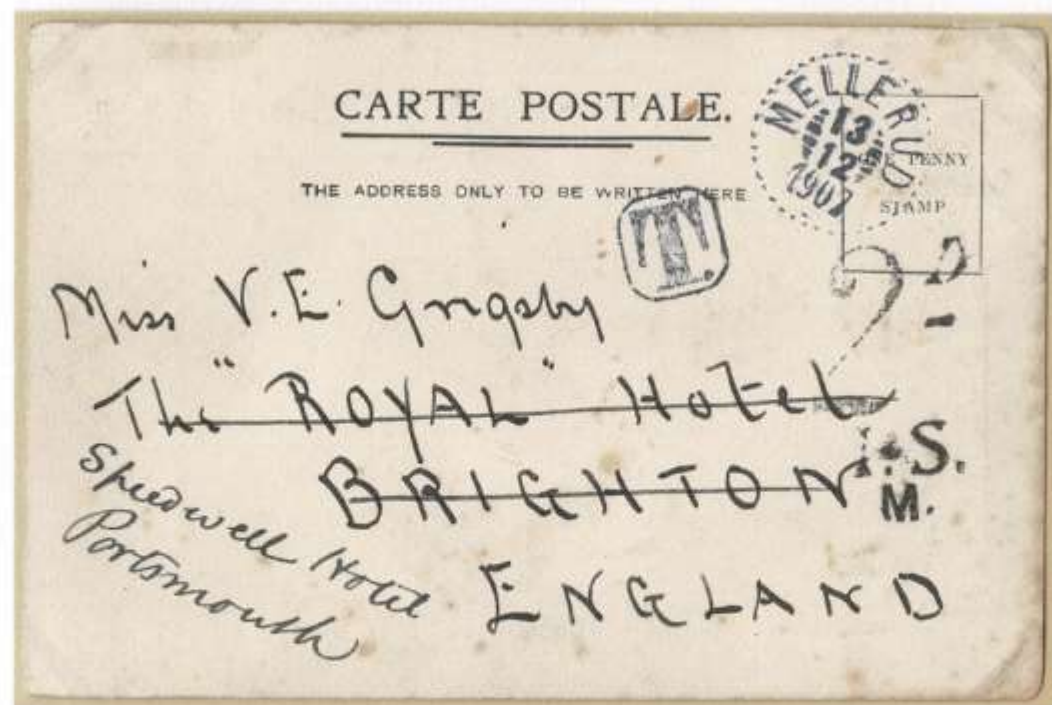 CARTE POSTALE.
THE ADDRESS ONLY TO BE WRITTEN HERE
MELLERUD
13
12
1907
ONE PENNY
STAMP
T.
Miss V. E. Grigsby
The "ROYAL" Hotel
BRIGHTON
ENGLAND
Speedwell Hotel
Portsmouth
S.
M.